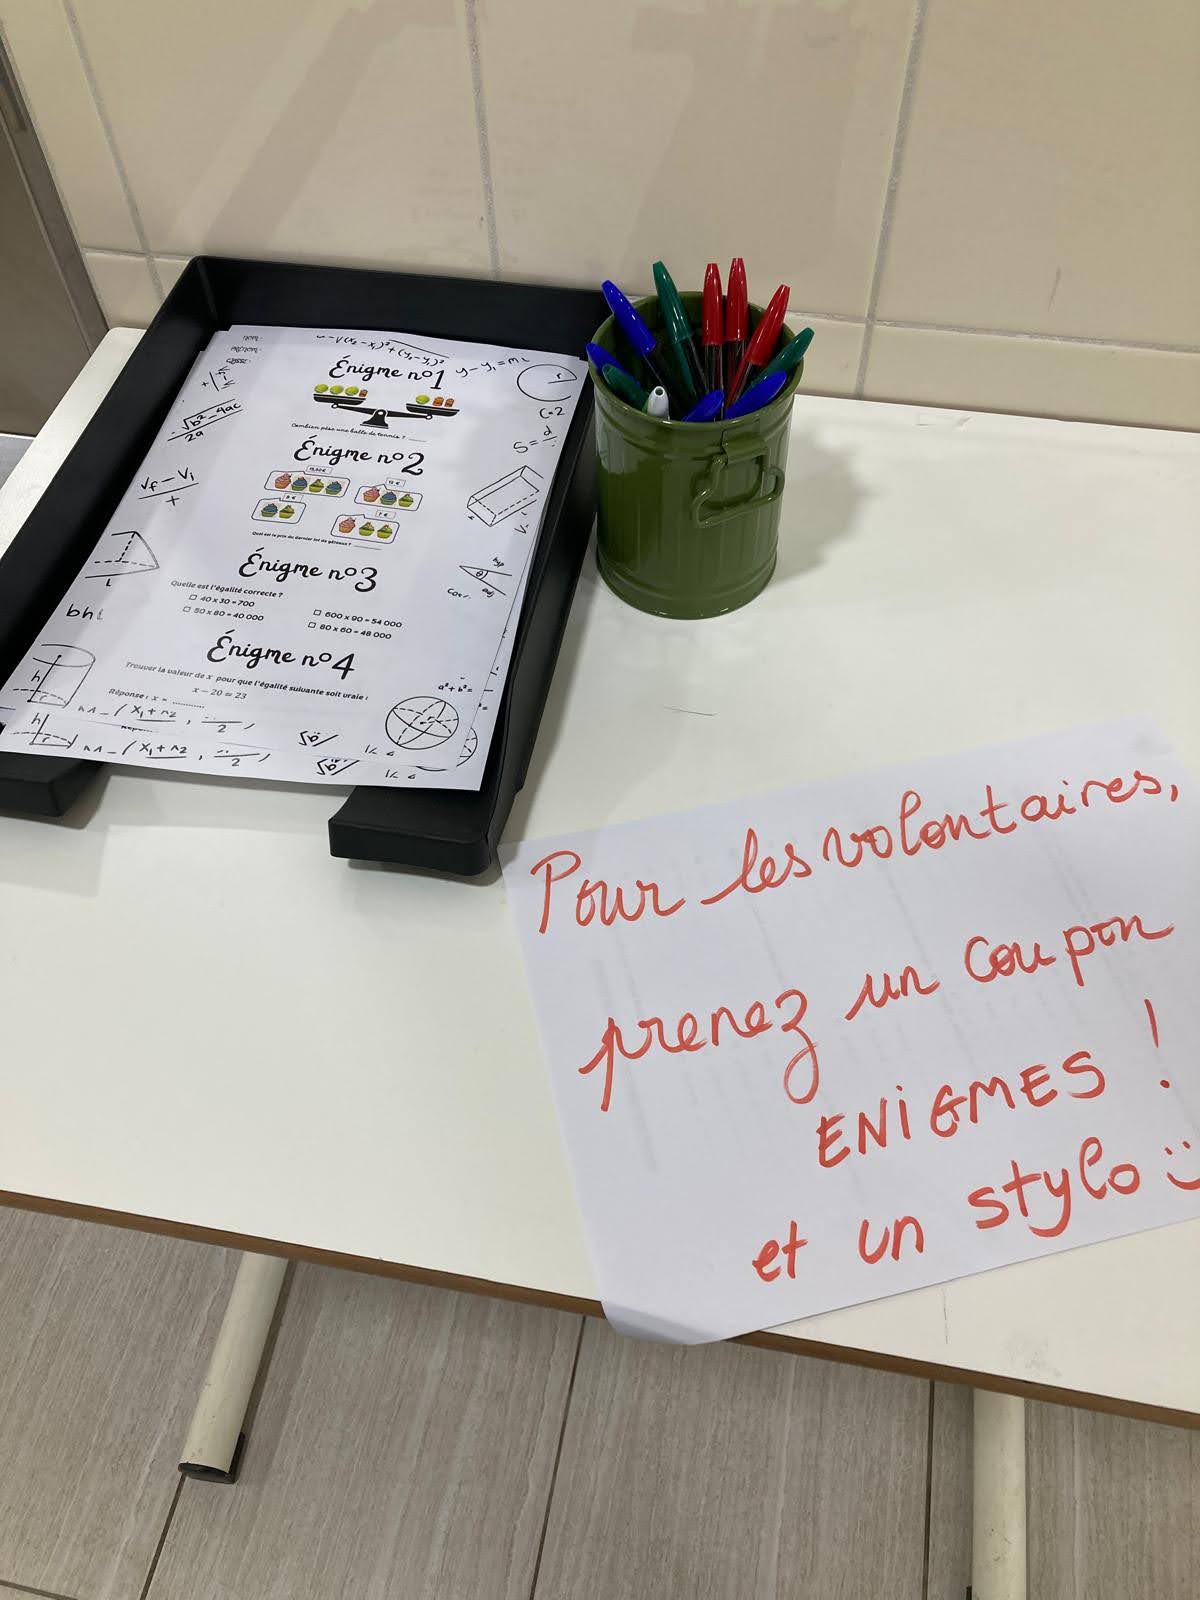 nom :
prénom :
classe :
Énigme nº1
y - y₁ = m(
r
Combien pèse une balle de tennis ? ____
Énigme nº2
√b²-4ac
2a
Vf - Vi
t
Quel est le prix du dernier lot de gâteaux ? ____
Énigme nº3
Quelle est l'égalité correcte ?
☐ 40 x 30 = 700
☐ 600 x 90 = 54 000
☐ 50 x 80 = 40 000
☐ 80 x 60 = 48 000
hyp
adj
θ
L
bh
Énigme nº4
Trouver la valeur de x pour que l'égalité suivante soit vraie :
x − 20 = 23
Réponse : x = ............
a² + b² =
h
r
h
Pour les volontaires,
prenez un coupon
ENiGMES !
et un stylo :)